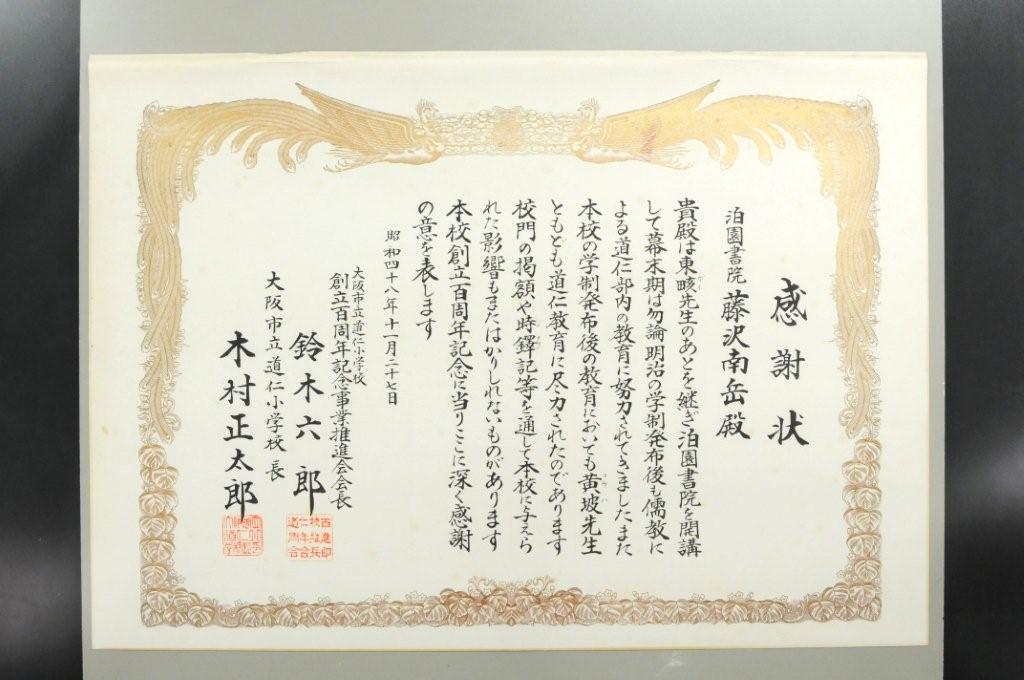 感謝状
泊園書院 藤沢南岳殿
貴殿は東畡先生のあとを継ぎ泊園書院を開講
して幕末期は勿論明治の学制発布後も儒教に
よる道仁部内の教育に努力されてきましたまた
本校の学制発布後の教育においても黄坡先生
ともども道仁教育に尽力されたのであります
校門の掲額や時鐸記等を通して本校に与えら
れた影響もまたはかりしれないものがあります
本校創立百周年記念に当りここに深く感謝
の意を表します
昭和四十八年十一月二十七日
大阪市立道仁小学校
創立百周年記念事業推進会会長
鈴木六郎
大阪市立道仁小学校長
木村正太郎